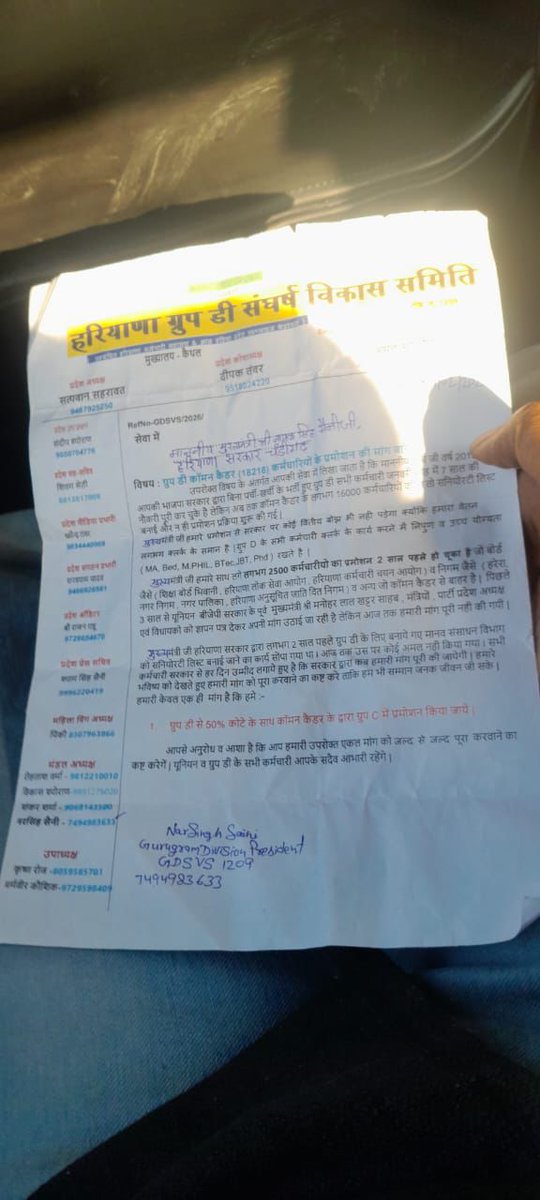 हरियाणा ग्रुप डी संघर्ष विकास समिति
मुख्यालय - कैथल
प्रदेश अध्यक्ष
सत्यवान सहरावत
9467925250
प्रदेश कोषाध्यक्ष
दीपक तंवर
9518024220
RefNo-GDSVS/2026/
सेवा में
माननीय मुख्यमंत्री श्री नायब सिंह सैनी जी,
हरियाणा सरकार चंडीगढ़
विषय : ग्रुप डी कॉमन कैडर (18218) कर्मचारियों के प्रमोशन की मांग
उपरोक्त विषय के अंतर्गत आपकी सेवा में लिखा जाता है कि माननीय जी वर्ष
आपकी भाजपा सरकार द्वारा बिना पर्ची-खर्ची के भर्ती हुए ग्रुप डी सभी कर्मचारी में 7 साल की
नौकरी पूरी कर चुके है लेकिन अब तक कॉमन कैडर के लगभग 16000 कर्मचारियों सनियोरटी लिस्ट
बनाई और न ही प्रमोशन प्रक्रिया शुरू की गई |
मुख्यमंत्री जी हमारे प्रमोशन से सरकार पर कोई वित्तीय बोझ भी नही पड़ेगा क्योंकि हमारा वेतन
लगभग क्लर्क के समान है | ग्रुप D के सभी कर्मचारी क्लर्क के कार्य करने में निपुण व उच्च योग्यता
( MA, Bed, M.PHIL, BTec,JBT, Phd ) रखते है |
मुख्यमंत्री जी हमारे साथ लगे लगभग 2500 कर्मचारीयो का प्रमोशन 2 साल पहले हो चूका है जो बोर्ड
जैसे (शिक्षा बोर्ड भिवानी , हरियाणा लोक सेवा आयोग , हरियाणा कर्मचारी चयन आयोग ) व निगम जैसे ( हरेरा,
नगर निगम , नगर पालिका , हरियाणा अनुसूचित जाति वित निगम ) व अन्य जो कॉमन कैडर से बाहर है | पिछले
3 साल से यूनियन बीजेपी सरकार के पूर्व मुख्यमंत्री श्री मनोहर लाल खट्टर साहब , मंत्रियो , पार्टी प्रदेश अध्यक्ष
एवं विधायको को ज्ञापन पत्र देकर अपनी मांग उठाई जा रही है लेकिन आज तक हमारी मांग पूरी नही की गयी |
मुख्यमंत्री जी हरियाणा सरकार द्वारा लगभग 2 साल पहले ग्रुप डी के लिए बनाये गए मानव संसाधन विभाग
को सनियोरटी लिस्ट बनाई जाने का कार्य सोंपा गया था | आज तक उस पर कोई अमल नही किया गया | सभी
कर्मचारी सरकार से हर दिन उम्मीद लगाये हुए है कि सरकार द्वारा कब हमारी मांग पूरी की जायेगी | हमारे
भविष्य को देखते हुए हमारी मांग को पूरा करवाने का कष्ट करे ताकि हम भी सम्मान जनक जीवन जी सके |
हमारी केवल एक ही मांग है कि हमे :-
1. ग्रुप डी से 50% कोटे के साथ कॉमन कैडर के द्वारा ग्रुप C में प्रमोशन किया जाये |
आपसे अनुरोध व आशा है कि आप हमारी उपरोक्त एकल मांग को जल्द से जल्द पूरा करवाने का
कष्ट करेगें | यूनियन व ग्रुप डी के सभी कर्मचारी आपके सदैव आभारी रहेंगे |
Narsingh Saini
Gurugram Division President
GDSVS 1209
7494983633
प्रदेश मीडिया प्रभारी
प्रदेश संगठन प्रभारी
प्रदेश ऑडिटर
प्रदेश प्रेस सचिव
श्याम सिंह सैनी
9996220419
महिला विंग अध्यक्ष
पिंकी 8307963866
मंडल अध्यक्ष
रोहताश वर्मा - 9812210010
विकास
शंकर शर्मा - 9068143500
नरसिंह सैनी - 7494983633
उपाध्यक्ष
कृष्ण रोज - 8059585701
धर्मवीर कौशिक-9729598409